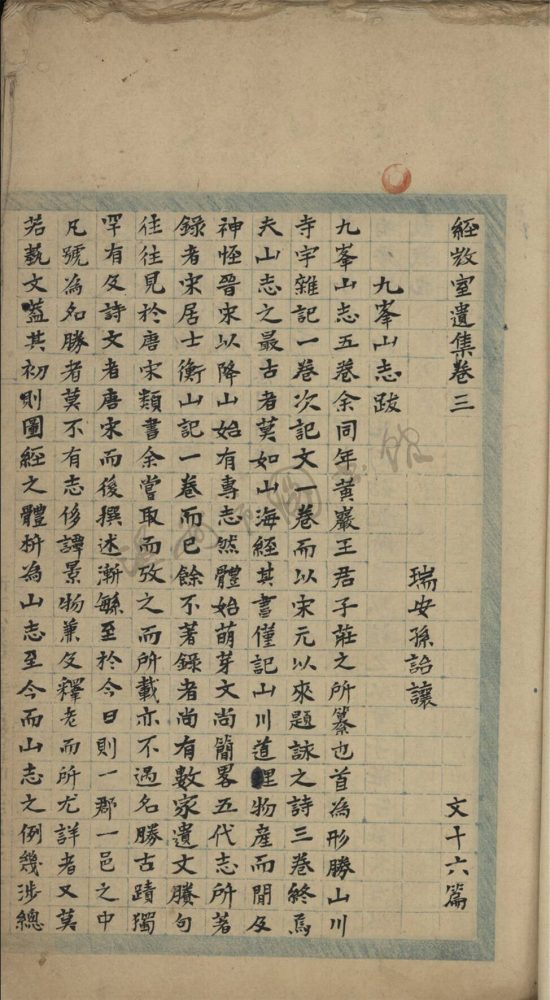 經𢽾室遺集卷三
文十六篇
瑞安孫詒讓
九峯山志跋
九峯山志五卷余同年黃巖王君子莊之所纂也首為形勝山川
寺宇雜記一卷次記文一卷而以宋元以來題詠之詩三卷終焉
夫山志之最古者莫如山海經其書僅記山川道里物產而閒及
神怪晉宋以降山始有專志然體始萌芽文尚簡畧五代志所著
錄者宋居士衡山記一卷而已餘不著錄者尚有數家遺文賸句
往往見於唐宋類書余嘗取而攷之而所載亦不過名勝古蹟獨
罕有及詩文者唐宋而後撰述漸緐至於今日則一郡一邑之中
凡號為名勝者莫不有志侈譚景物兼及釋老而所尤詳者又莫
若藝文蓋其初則圖經之體枿為山志至今而山志之例幾涉總